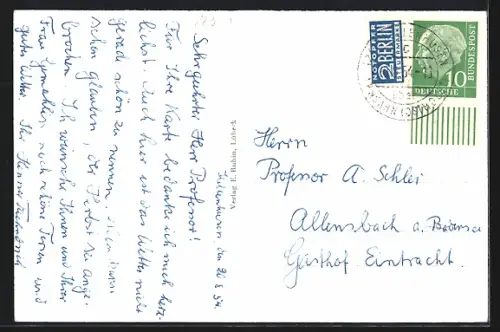 Sehrgeehrter Herr Professor!
Für Ihre Karte bedanke ich mich herz-
lichst. Auch hier ist das Wetter nicht
gerade schön zu nennen,
schon glauben, der Herbst sei ange-
brochen. Ich wünsche Ihnen und Ihrer
Frau Gemahlin, noch schöne Ferien und
gutes Wetter. Ihr
den 20.8.54.
Verlag E. Rubin, Lübeck
NOTOPFER
2 BERLIN
STEUERMARKE
DEUTSCHE BUNDESPOST
10
Herrn
Professor A. Schler
Allensbach a. Bodensee
Gasthof Eintracht.